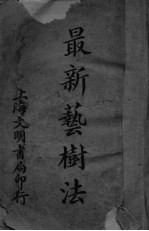 最新藝樹法
上海文明書局印行